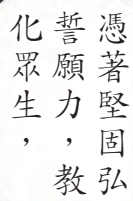 憑著堅固弘
誓願力，教
化眾生，